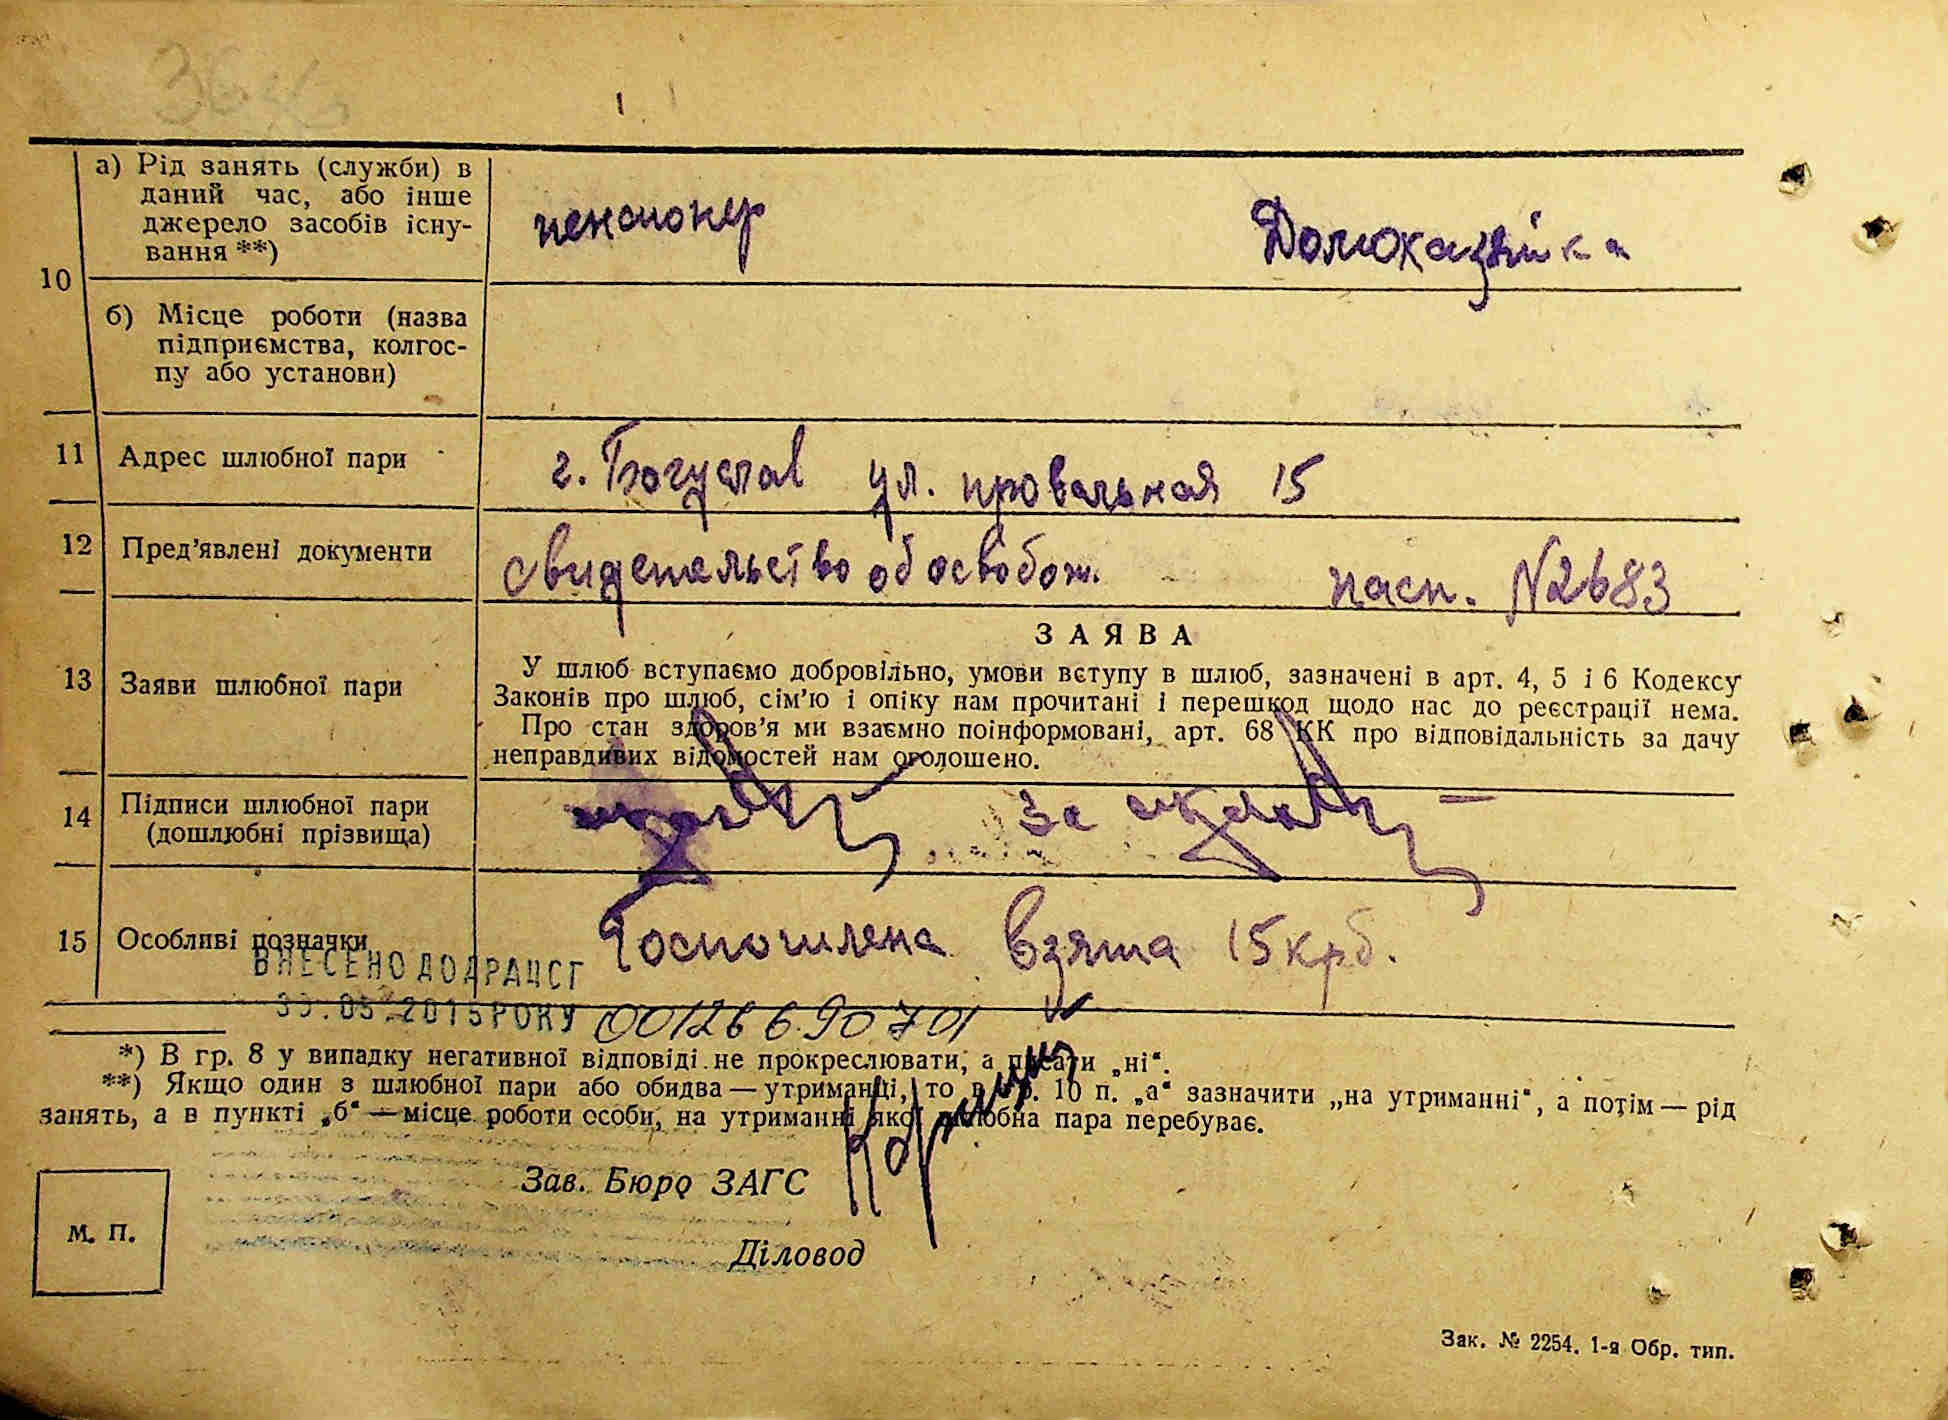 а) Рід занять (службн) в
даний час, або інше
джерело засобів існу-
вання **)
пенсионер
Домохазяйка
10
б) Місце роботи (назва
підприємства, колгос-
пу або установи)
11 Адрес шлюбної пари г. Богуслав ул. провальная 15
12 Пред’явлені документи свидетельство об освобож. пасп. №2683
13 Заяви шлюбної пари
ЗАЯВА
У шлюб вступаємо добровільно, умови вступу в шлюб, зазначені в арт. 4, 5 і 6 Кодексу
Законів про шлюб, сім’ю і опіку нам прочитані і перешкод щодо нас до реєстрації нема.
Про стан здоров’я ми взаємно поінформовані, арт. 68 КК про відповідальність за дачу
неправдивих відомостей нам оголошено.
14 Підписи шлюбної пари
(дошлюбні прізвища)
за
15 Особливі позначки Госпошлена взята 15 крб.
ВНЕСЕНО ДО ДРАЦСГ
.05.2015 РОКУ 00126690701
*) В гр. 8 у випадку негативної відповіді не прокреслювати, а писати „ні“.
**) Якщо один з шлюбної пари або обидва — утриманці, то в гр. 10 п. „а“ зазначити „на утриманні“, а потім — рід
занять, а в пункті „б“ — місце роботи особи, на утриманні якої шлюбна пара перебуває.
Зав. Бюро ЗАГС
М. П.
Діловод
Зак. № 2254. 1-я Обр. тип.